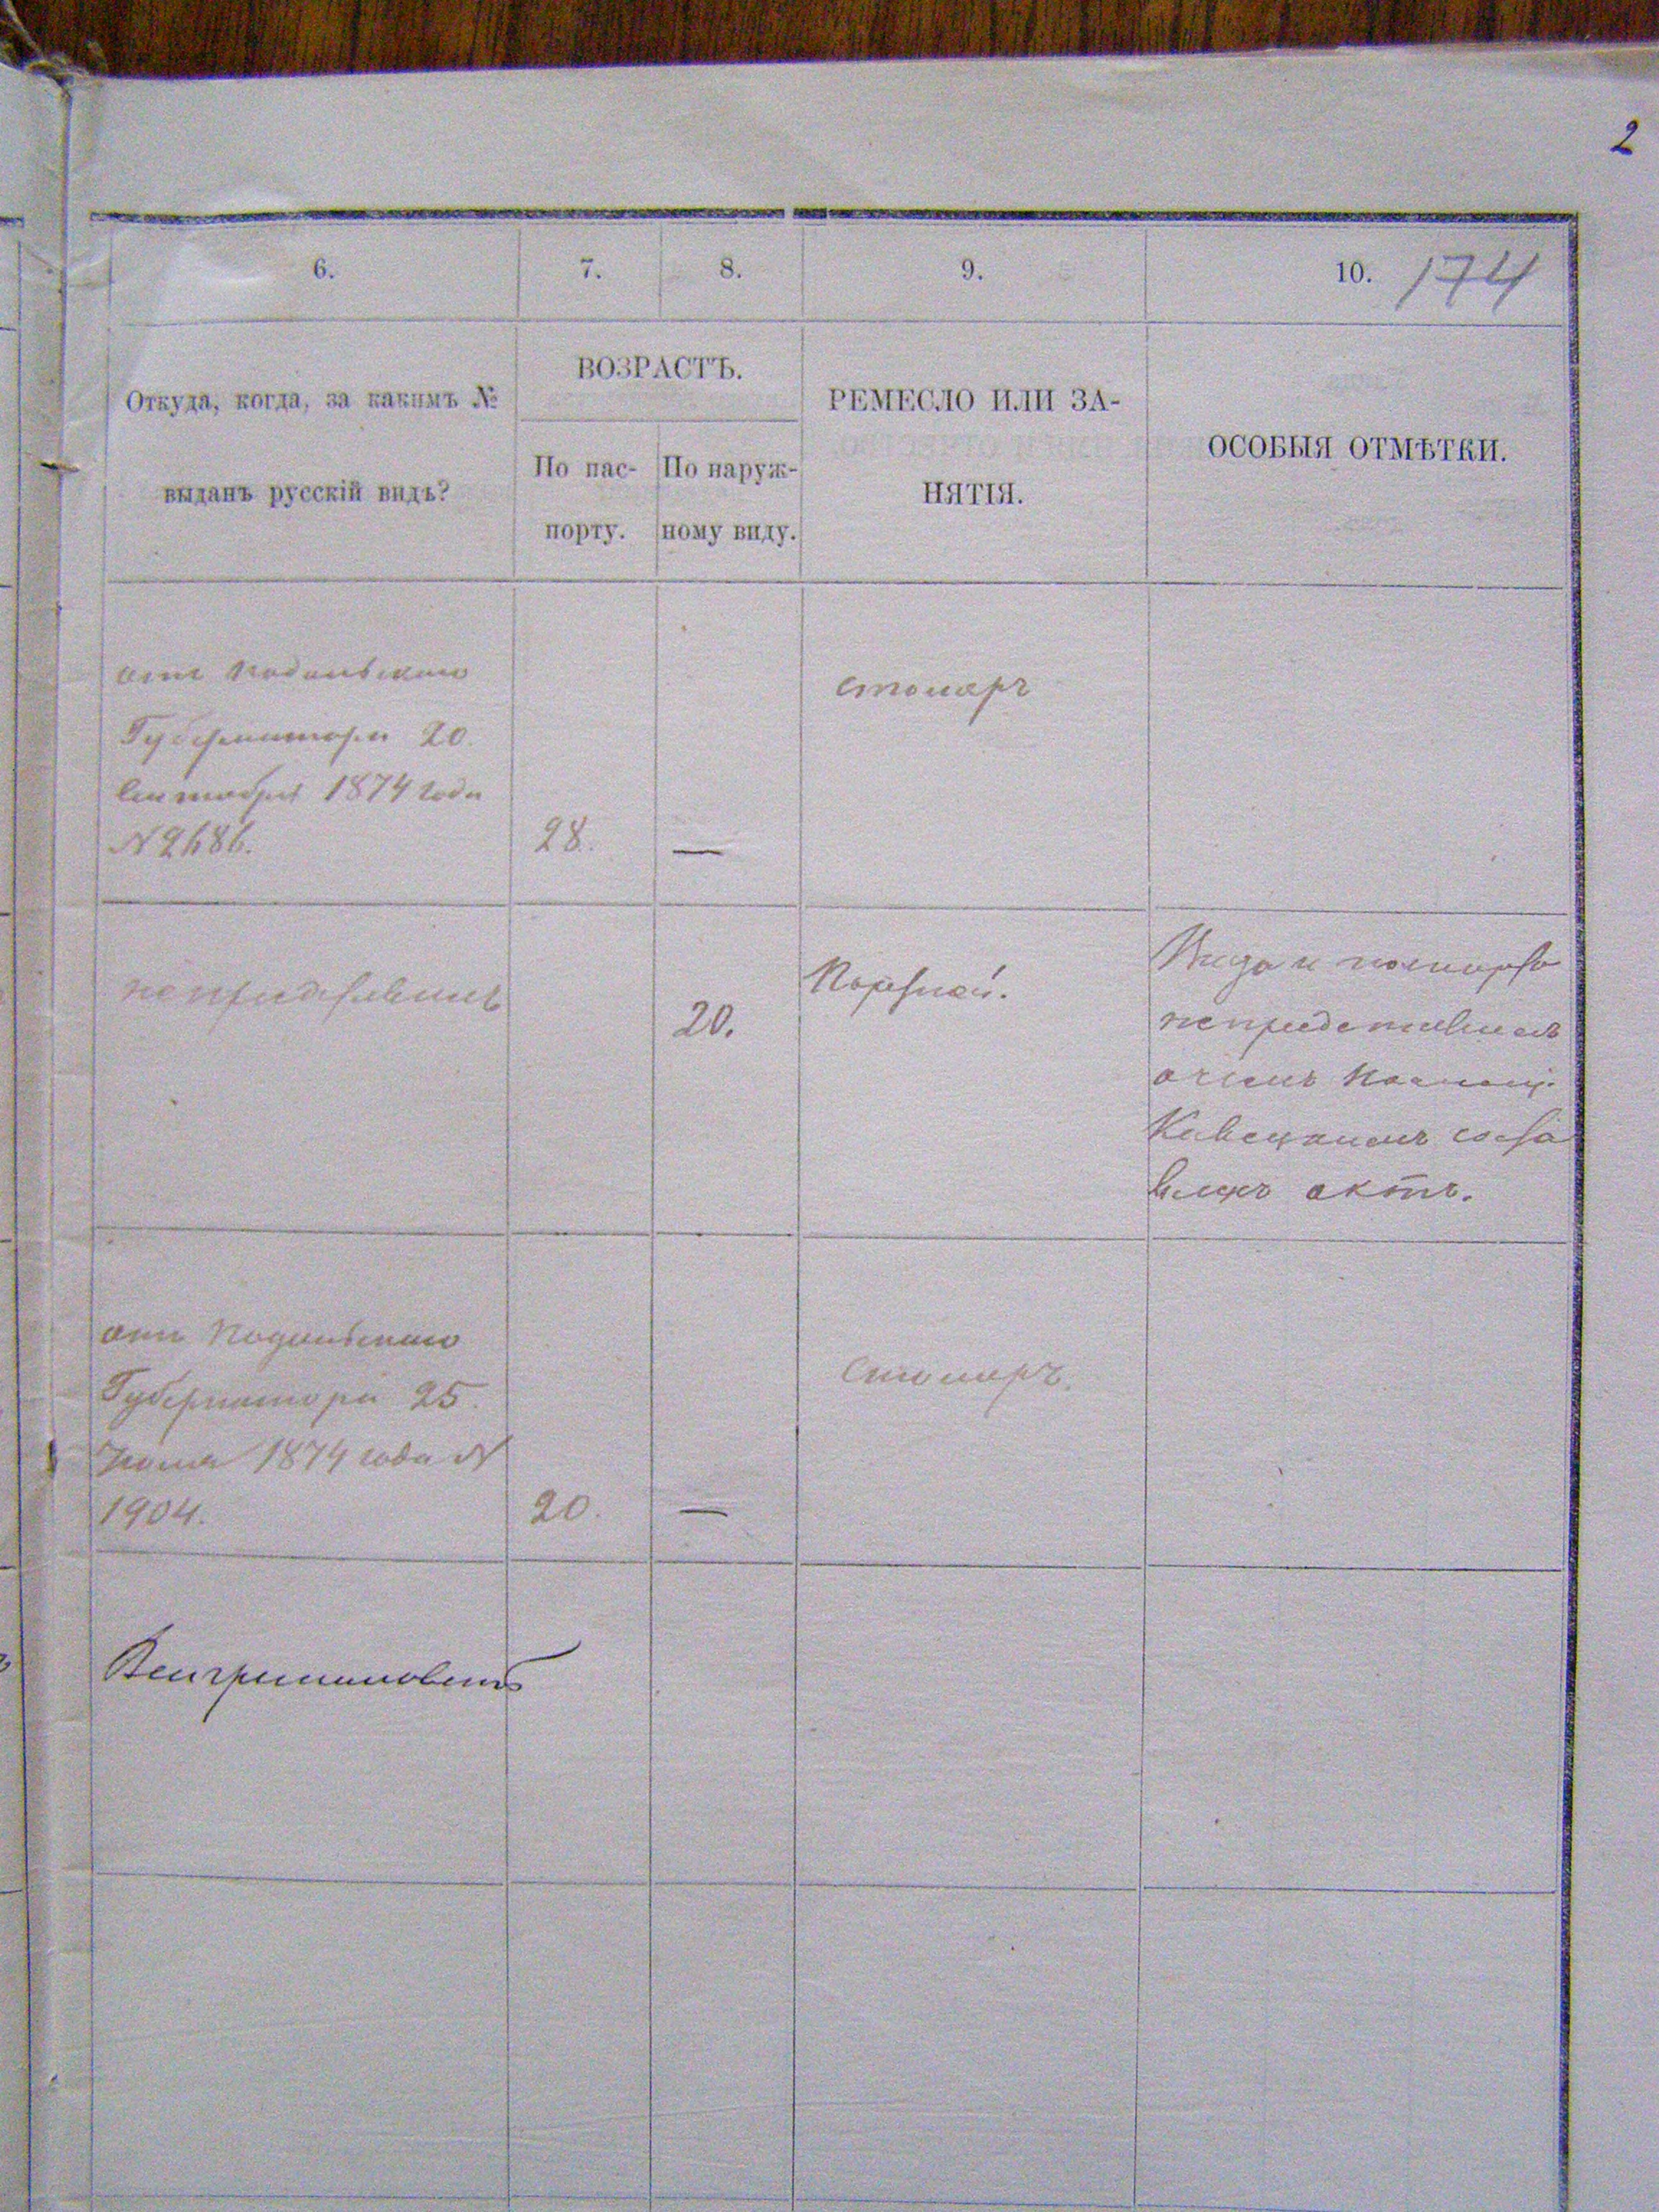 2
6.
7.
8.
9.
10. 174
Откуда, когда, за какимъ №
выданъ русскій видъ?
ВОЗРАСТЪ.
По пас-
портy.
По наруж-
ному виду.
РЕМЕСЛО ИЛИ ЗА-
НЯТІЯ.
ОСОБЫЯ ОТМѢТКИ.
отъ Подольскаго
Губернатора 20.
Сентября 1874 года
№ 2686.
28.
—
столяръ
непредставилъ
20.
Портной.
Вида и паспорта
непредставилъ
о чемъ
составленъ
актъ.
отъ Подольскаго
Губернатора 25.
Іюля 1874 года №
1904.
20.
—
Столяръ.